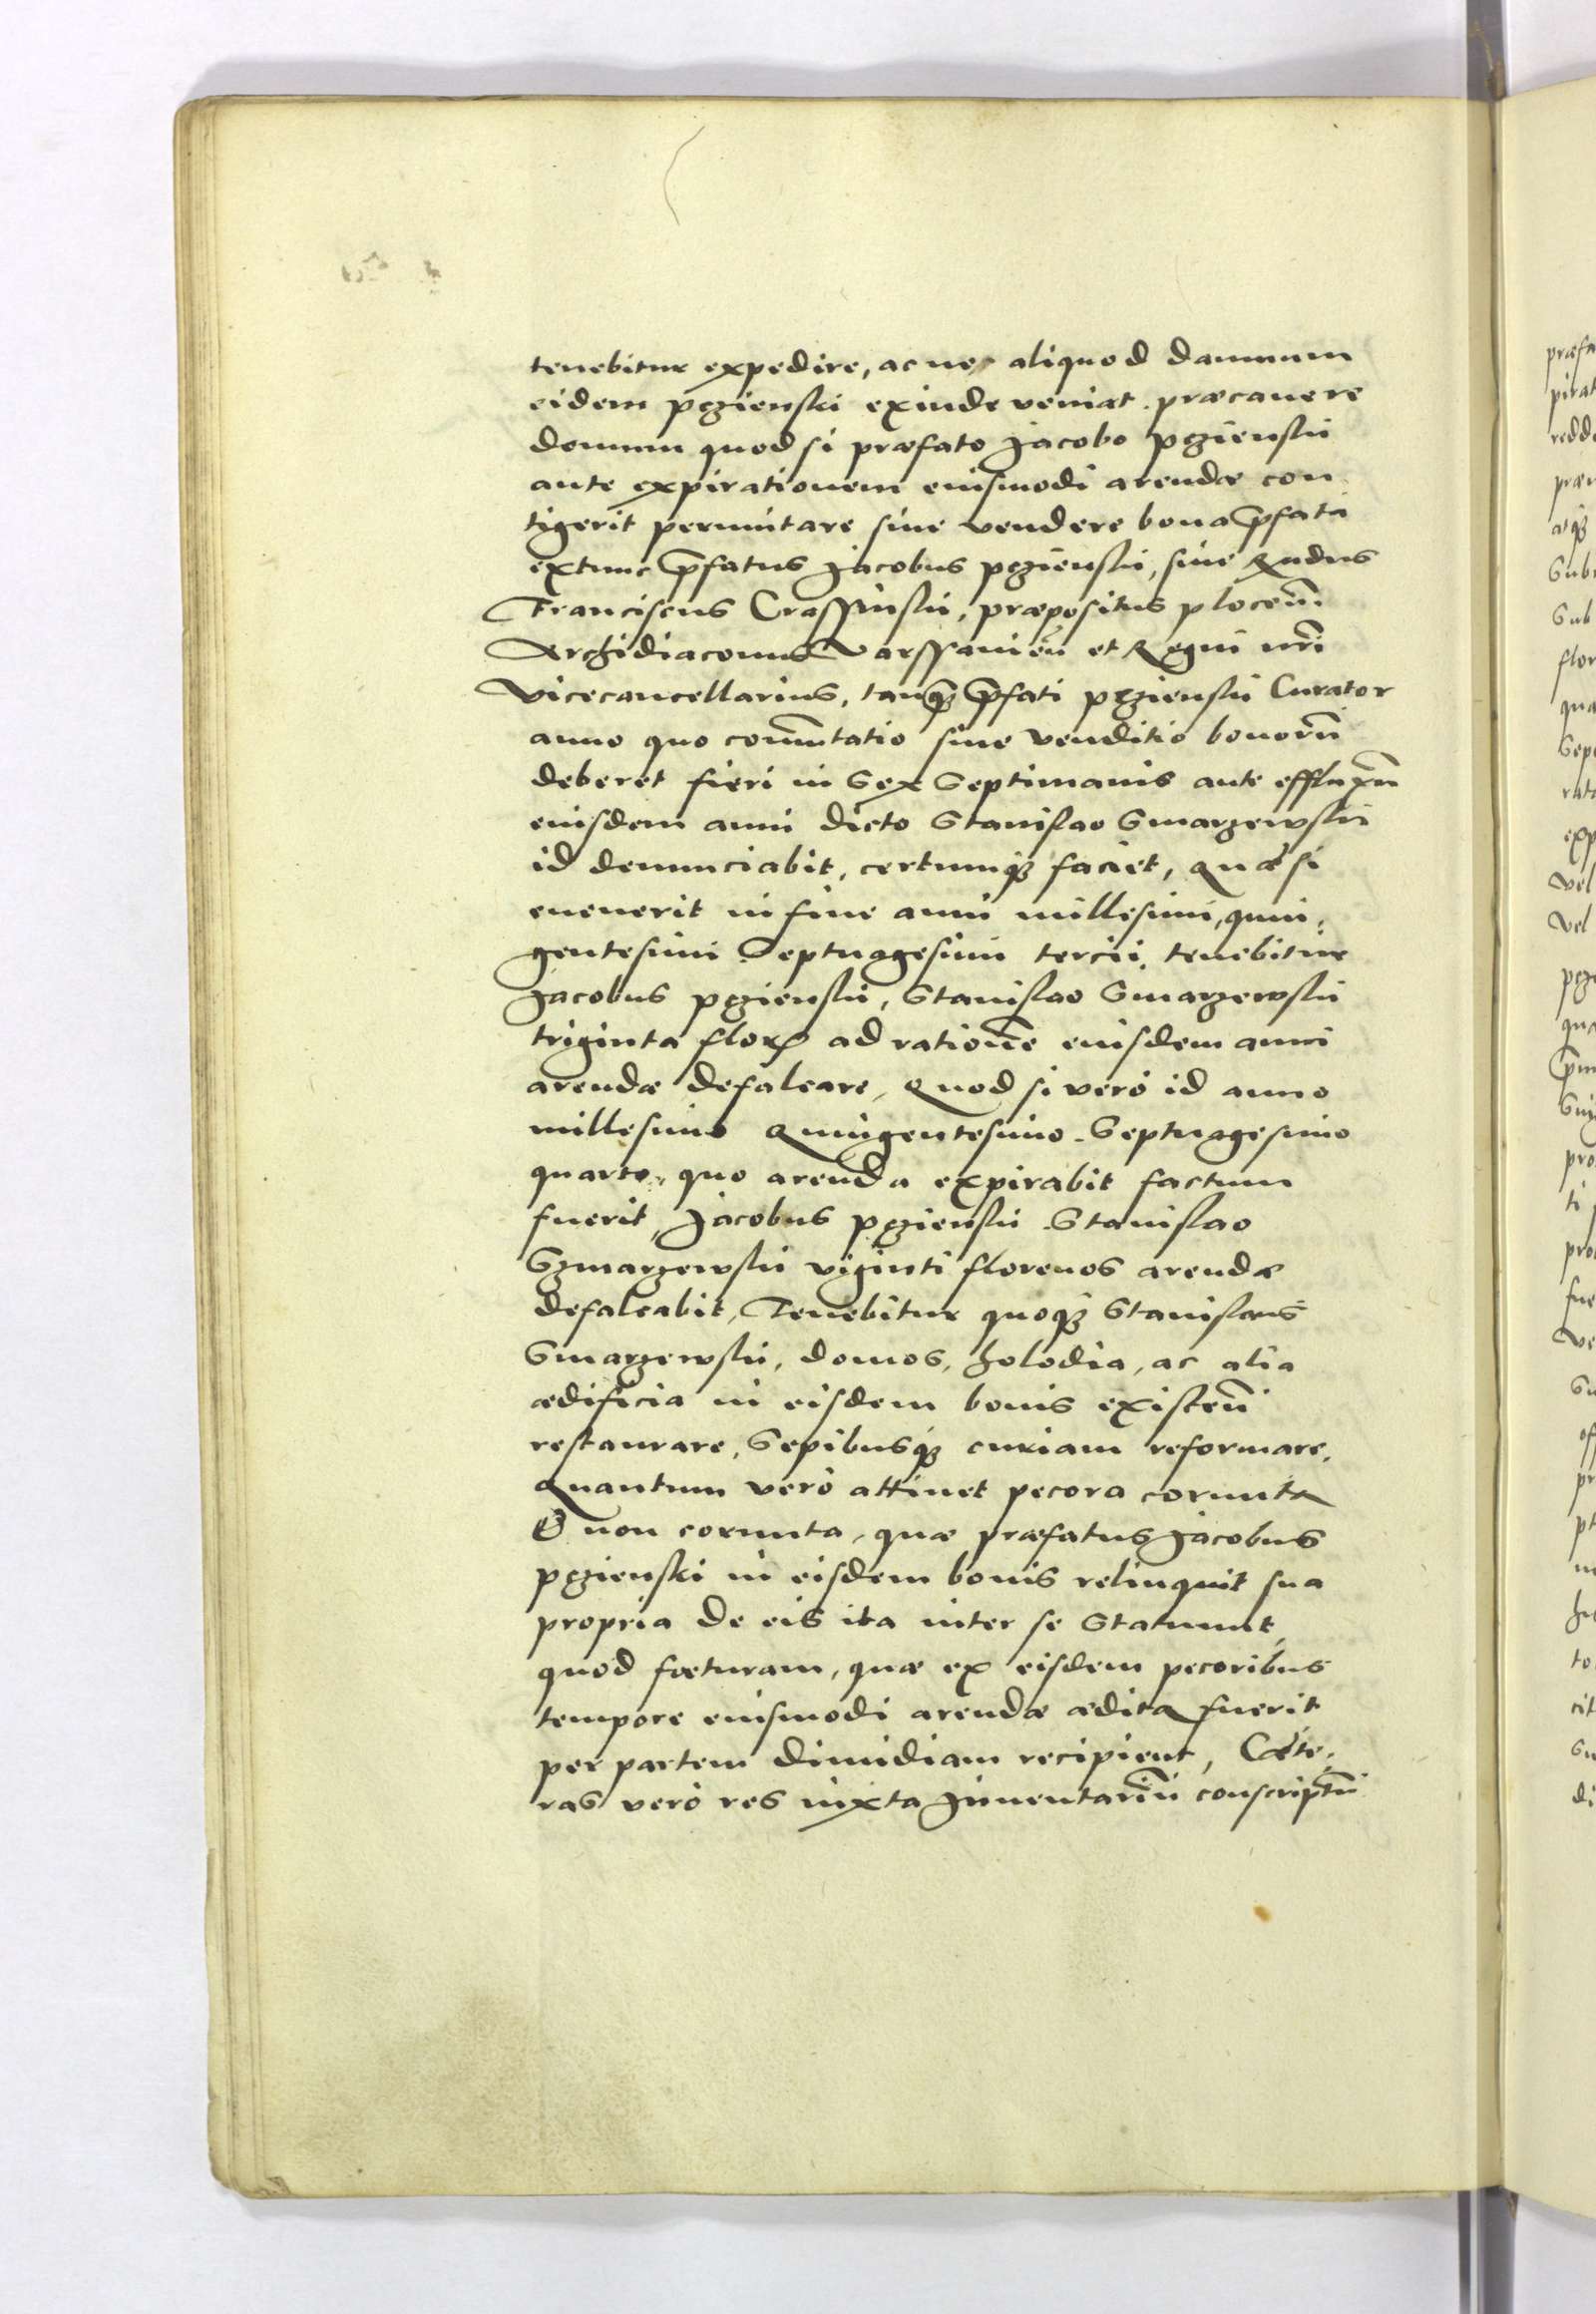 tenebitur expedire, ac ne aliquod damnum
eidem pęzienski exinde veniat præcauere
domum quod si præfato Jacobo pęzienski
ante expirationem eiusmodi arendæ con
tigerit permutare siue vendere bona p̄fata
extunc p̄fatus Jacobus pęzienski, siue Rndus
Franciscus Crassinski, præpositus plocen̄
Archidiaconus Varssauien̄ et Regni nr̄i
Vicecancellarius, tanq̄ p̄fati pęzienski Curator
anno quo com̄utatio siue venditio bonorū
deberet fieri in Sex Septimanis ante effluxū
eiusdem anni dicto Stanislao Smarzewski
id denunciabit, certumq3 faciet, Quæ si
euenerit in fine anni millesimi, quin:
gentesimi Septuagesimi tercii, tenebitur
Jacobus pęzienski, Stanislao Smarzewski
triginta flor ad rationē eiusdem anni
arendæ defalcare, Quod si verò id anno
millesimo Quingentesimo Septuagesimo
quarto, quo arenda expirabit factum
fuerit, Jacobus pęzienski Stanislao
Szmarzewski viginti florenos arendæ
defalcabit, Tenebitur quoq3 Stanislaus
Smarzewski, domos, holodia, ac alia
ædificia in eisdem bonis existen̄
restaurare, Sepibusq3 curiam reformare.
Quantum verò attinet pecora cornuta
& non cornuta, quæ præfatus Jacobus
pęzienski in eisdem bonis relinquit sua
propria de eis ita inter se statuunt,
quod fœturam, quæ ex eisdem pecoribus
tempore eiusmodi arendæ ædita fuerit
per partem dimidiam recipient, Cæte:
ras verò res iuxta Inuentariū conscriptū